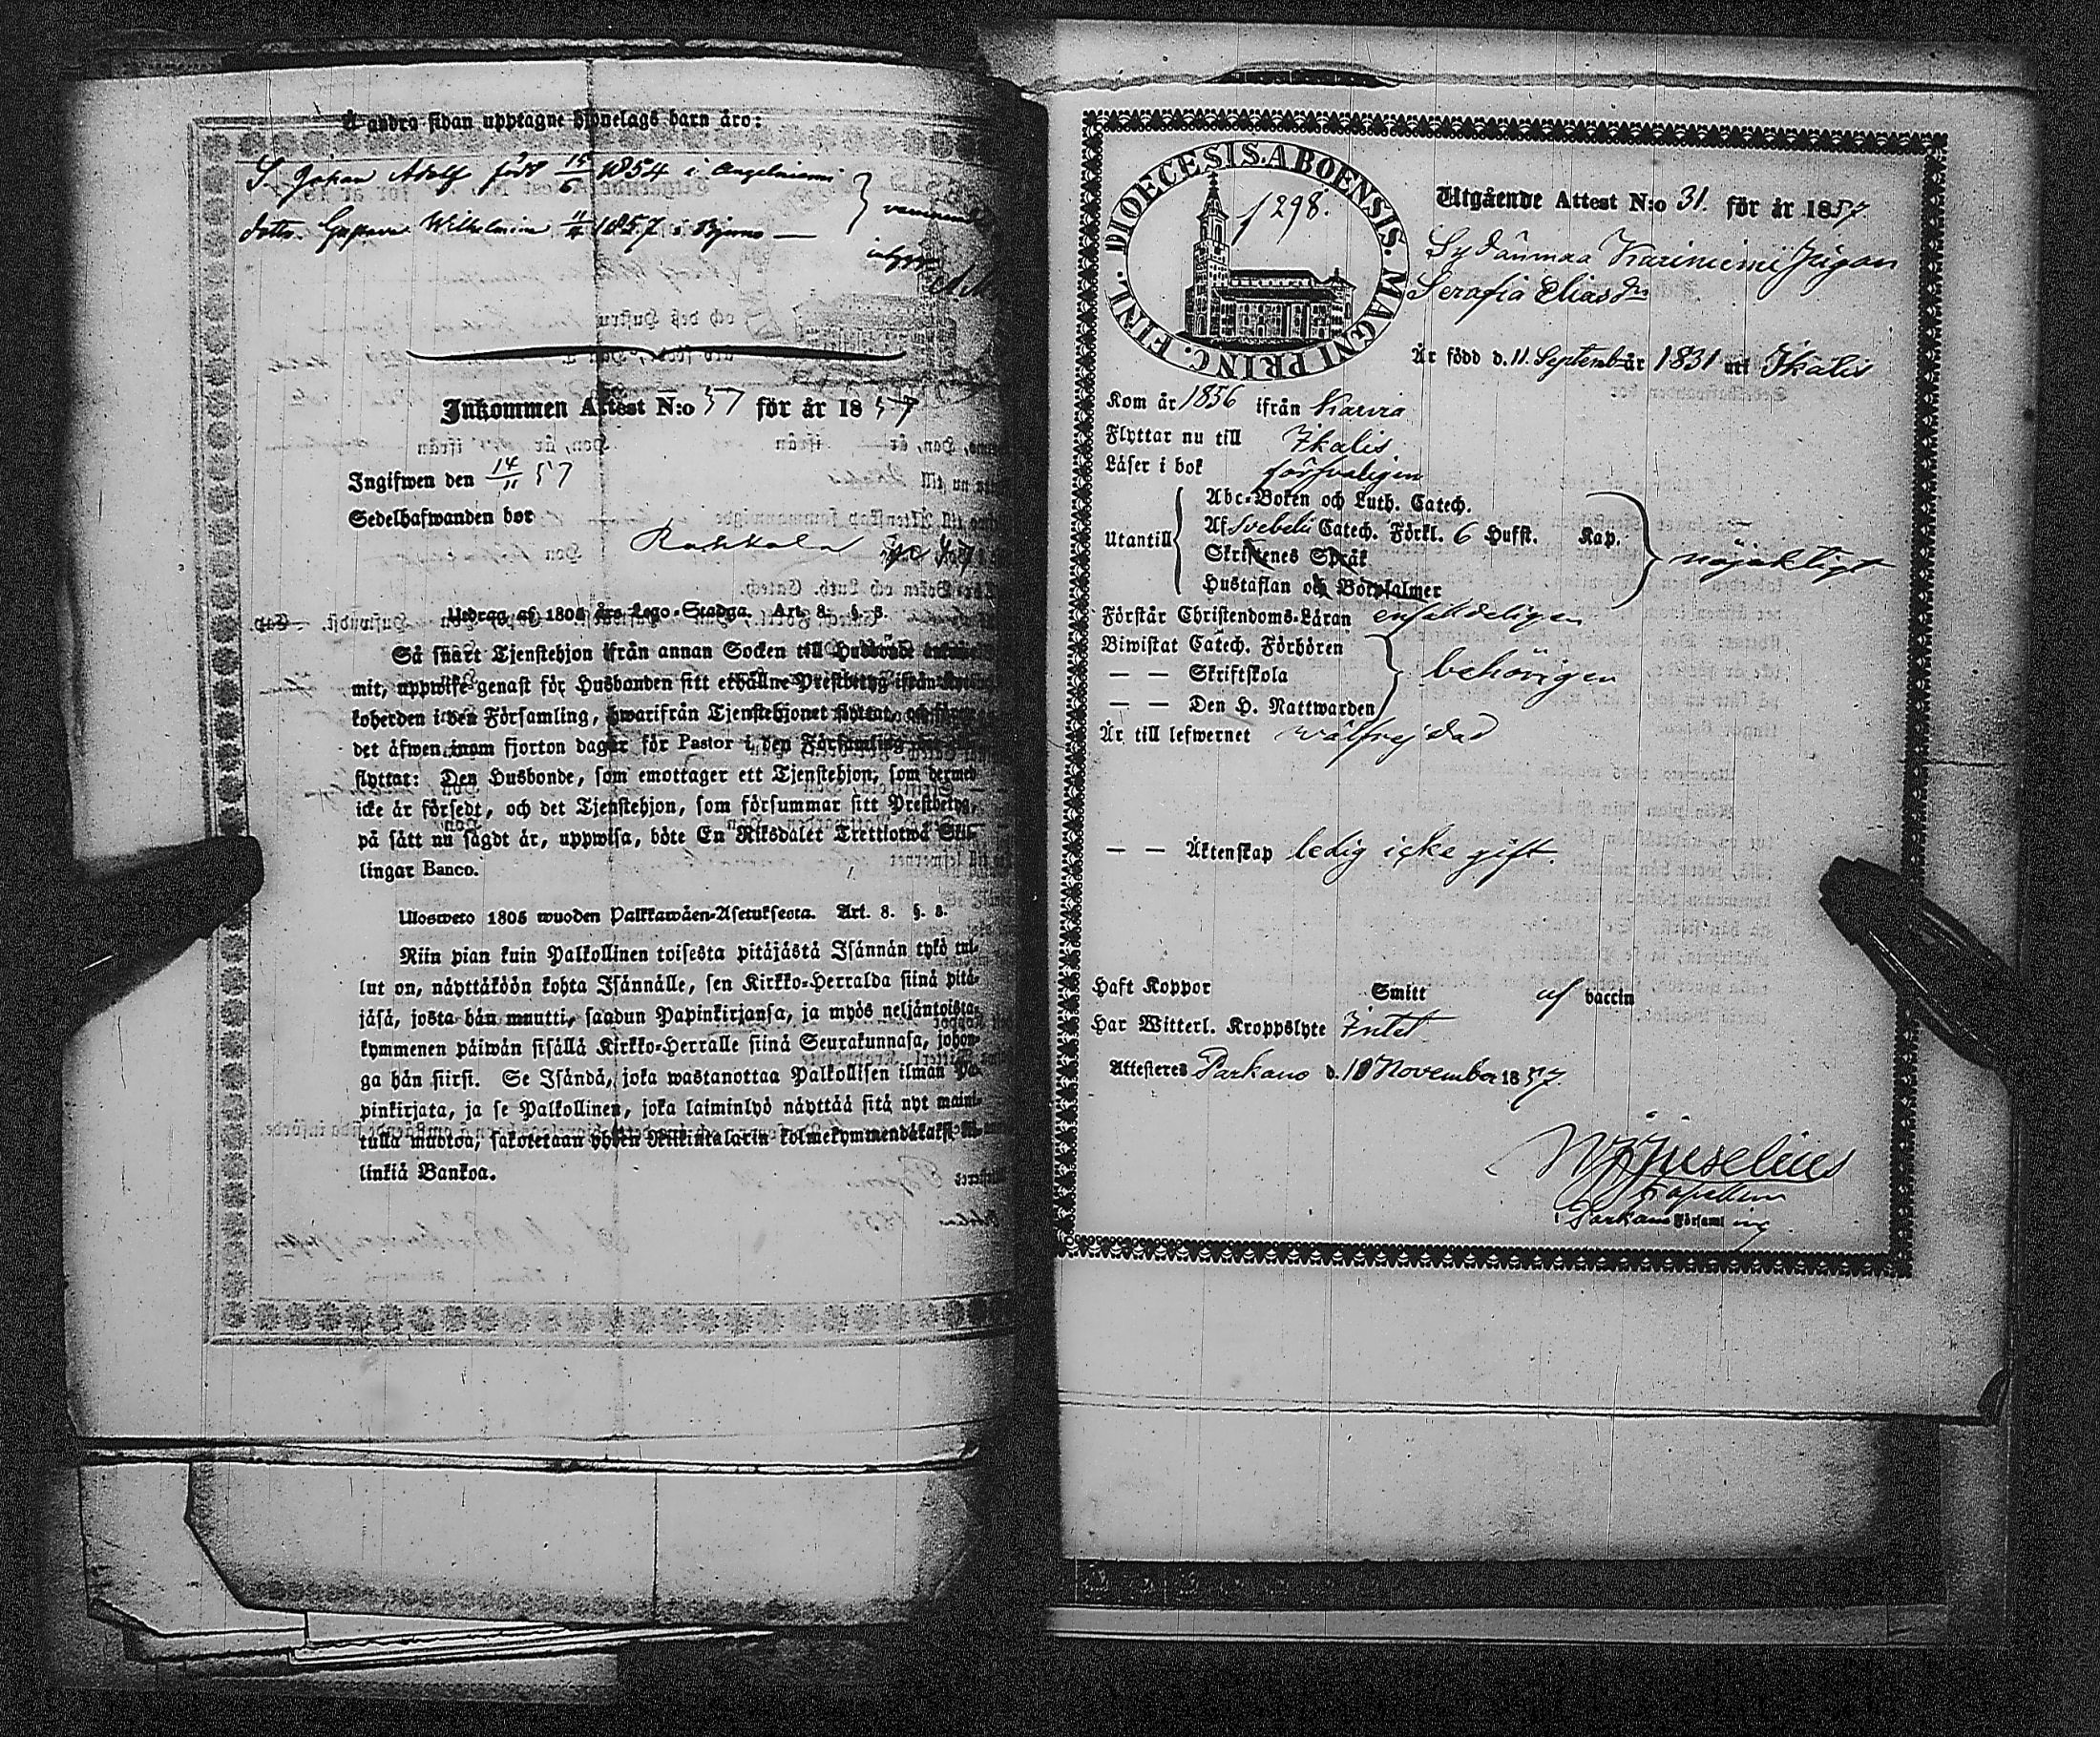 Å andra sidan upptagne hjonelags barn äro:
S. Johan Adolf född 15/6 1854 i Angelniemi
dottr. Gustava Wilhelmina 11/4 1857 i Bjerno —
Inkommen Attest N:o 57 för år 1857
Ingifwen den 14/11 57
Sedelhafwanden bor
Utdrag af 1805 års Lego-Stadga. Art. 8. §. 8.
Så snart Tjenstehjon ifrån annan Socken till Husbonde
mit, uppwise genast för Husbonden sitt erhållne Prestbetyg ifrån
koherden i den Församling, hwarifrån Tjenstehjonet flyttat,
det äfwen inom fjorton dagar för Pastor i den Församling
flyttat: Den Husbonde, som emottager ett Tjenstehjon, som dermed
icke är försedt, och det Tjenstehjon, som försummar sitt Prestbetyg,
på sätt nu sagdt är, uppwisa, böte En Riksdaler Trettiotwå Skil-
lingar Banco.
Ulosweto 1805 wuoden Palkkawäen-Asetuksesta. Art. 8. §. 8.
Niin pian kuin Palkollinen toisesta pitäjästä Isännän tykö tul-
lut on, näyttäköön kohta Isännälle, sen Kirkko-Herralda siinä pitä-
jäsä, josta hän muutti, saadun Papinkirjansa, ja myös neljäntoista-
kymmenen päiwän sisällä Kirkko-Herralle siinä Seurakunnasa, johon-
ga hän siirsi. Se Isändä, joka wastanottaa Palkollisen ilman Pa-
pinkirjata, ja se Palkollinen, joka laiminlyö näyttää sitä nyt maini-
tulla muotoa, sakotetaan yhden Riikintalarin kolmekymmendäkaksi kil-
linkiä Bankoa.
DIOECESIS. ABOENSIS. MAGNI PRINC. FINL.
1298.
Utgående Attest N:o 31. för år 1857
Sydänmaa Kariniemi Pigan
Serafia Eliasdr
Är född d. 11. September år 1831 uti Ikalis
Kom år 1856 ifrån Karvia
Flyttar nu till Ikalis
Läser i bok försvarligen
Utantill
Abc-Boken och Luth. Catech.
Af Svebelii Catech. Förkl. 6 Hufst. Kap.
Skriftenes Språk
Hustaflan och Botpsalmer
nöjaktigt
Förstår Christendoms-Läran enfaldeligen
Biwistat Catech. Förhören
— — Skriftskola
— — Den H. Nattwarden
behörigen
Är till lefwernet välfrejdad
— — Äktenskap ledig icke gift.
Haft Koppor Smitt af vaccin
Har Witterl. Kroppslyte Intet
Attesteras Parkano d. 10 November 1857.
Juselius
Kapellan
i Parkano Församling